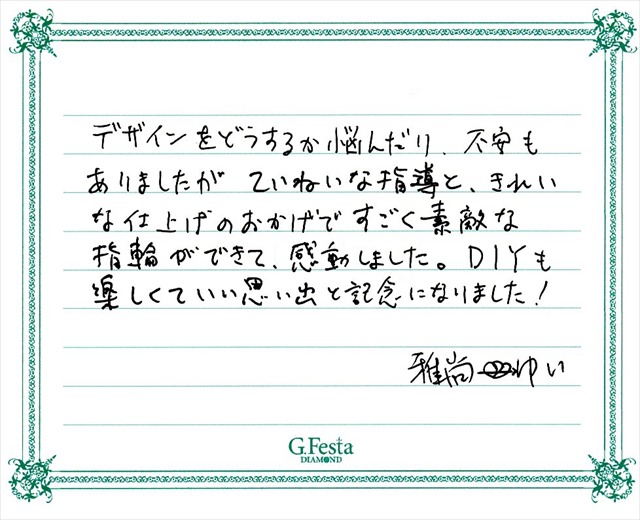 デザインをどうするか悩んだり、不安も
ありましたが ていねいな指導と、きれい
な仕上げのおかげで すごく素敵な
指輪ができて、感動しました。DIYも
楽しくていい思い出と記念になりました!
雅尚 ゆい
G.Festa
DIAMOND